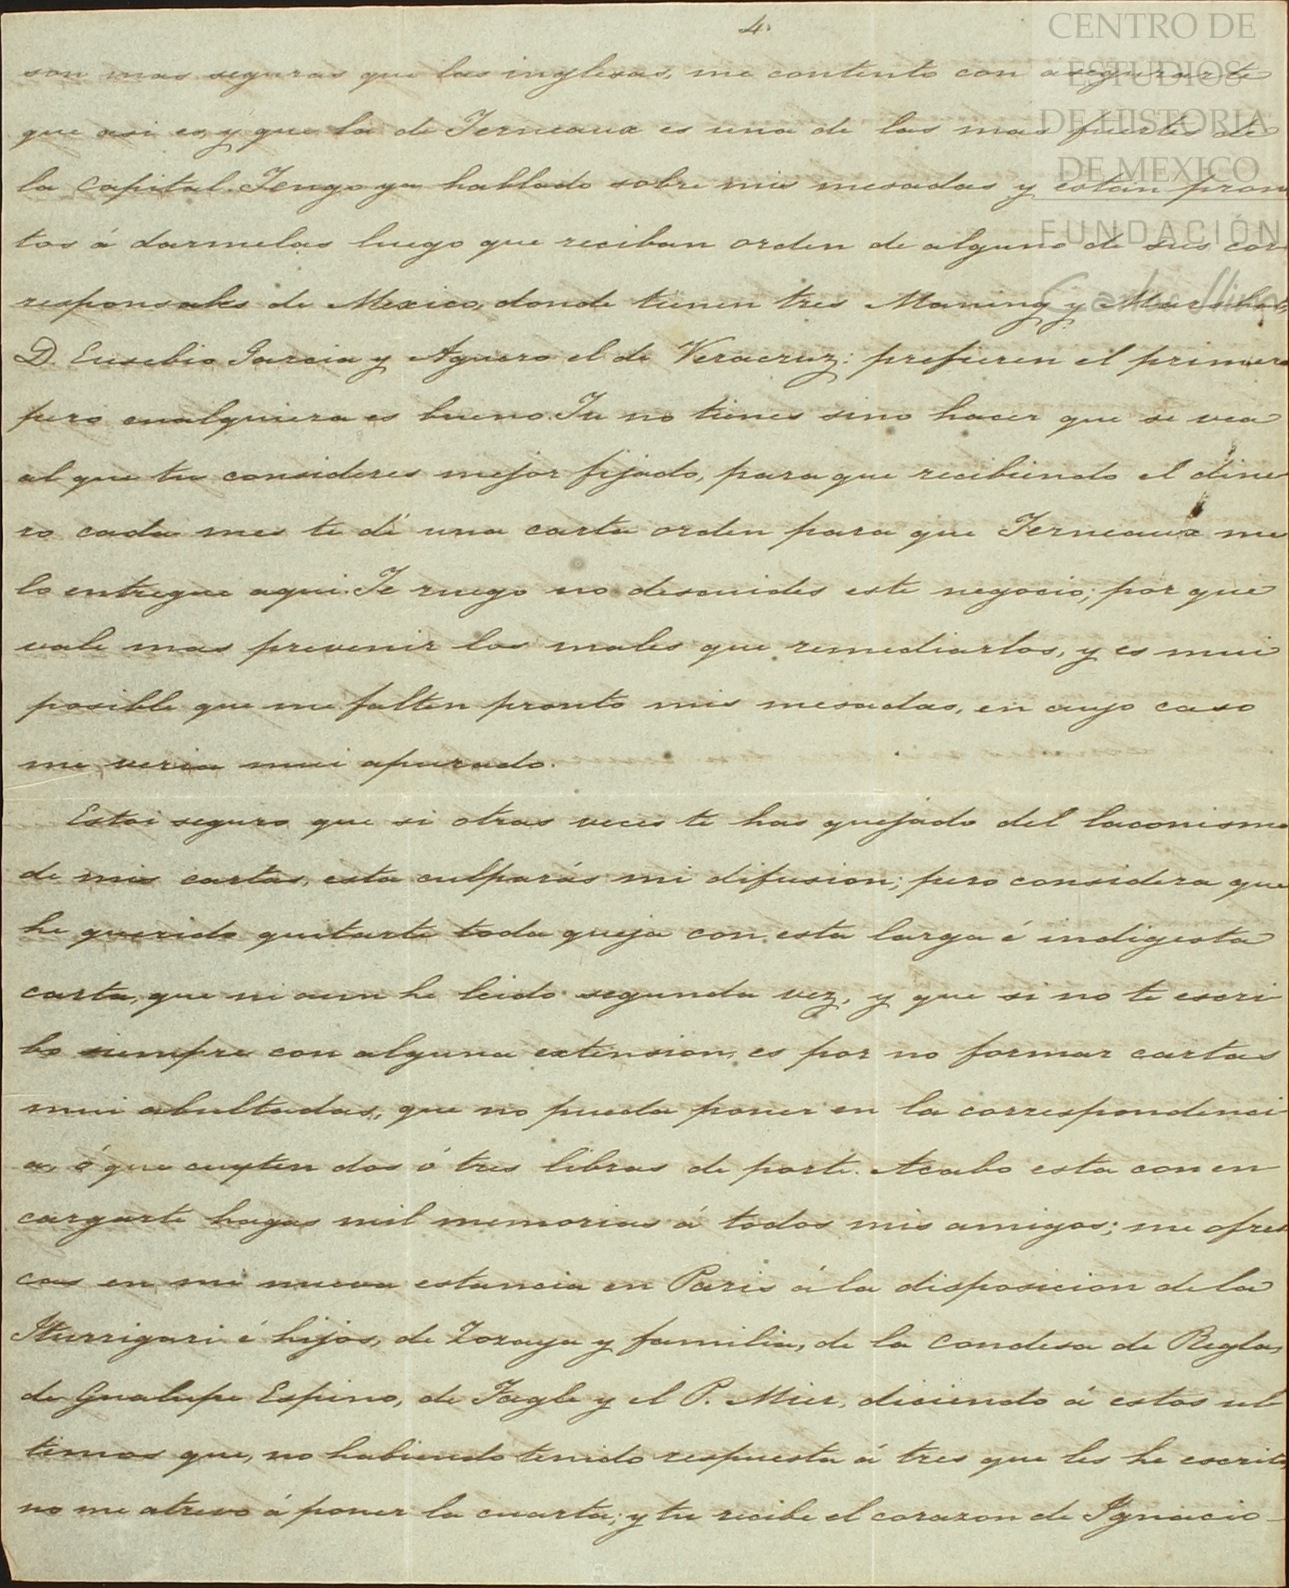 4.
CENTRO DE
ESTUDIOS
DE HISTORIA
DE MEXICO
FUNDACIÓN
Carlos Slim
son mas seguras que las inglesas, me contento con asegurarte
que asi es, y que la de Terneaux es una de las mas fuertes de
la capital. Tengo ya hablado sobre mis mesadas y están pron
tos á darmelas luego que reciban orden de alguno de sus cor
responsales de Mexico, donde tienen tres Maning y Marshal,
D. Eusebio Garcia y Aguero el de Veracruz: prefieren el primero
pero cualquiera es bueno. Tu no tienes sino hacer que se vea
al que tu consideres mejor fijado, para que recibiendo el dine
ro cada mes te dé una carta orden para que Terneaux me
lo entregue aqui. Te ruego no descuides este negocio; por que
vale mas prevenir los males que remediarlos, y es mui
posible que me falten pronto mis mesadas, en cuyo caso
me veria mui apurado.
Estoi seguro que si otras veces te has quejado del laconismo
de mis cartas, esta culparás mi difusion; pero considera que
he querido quitarte toda queja con esta larga é indigesta
carta, que ni aun he leido segunda vez, y que si no te escri
bo siempre con alguna extension, es por no formar cartas
mui abultadas, que no pueda poner en la correspondenci
a, ó que cuesten dos ó tres libras de porte. Acabo esta con en
cargarte hagas mil memorias á todos mis amigos; me ofrez
cas en mi nueva estancia en Paris á la disposicion de la
Iturrigari é hijos, de Zozaya y familia, de la condesa de Regla,
de Gualupe Espino, de Tagle y el P. Mier, diciendo á estos ul
timos que, no habiendo tenido respuesta á tres que les he escrito,
no me atrevo á poner la cuarta; y tu recibe el corazon de Ignacio